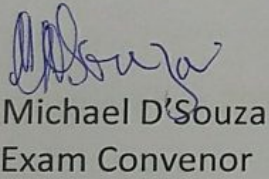 MDSouza
Michael D'Souza
Exam Convenor